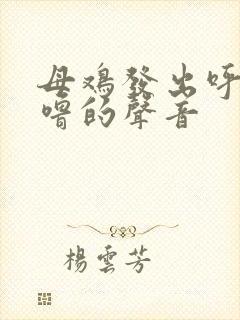 母鸡發出呼
噜的聲音
楊雲芳